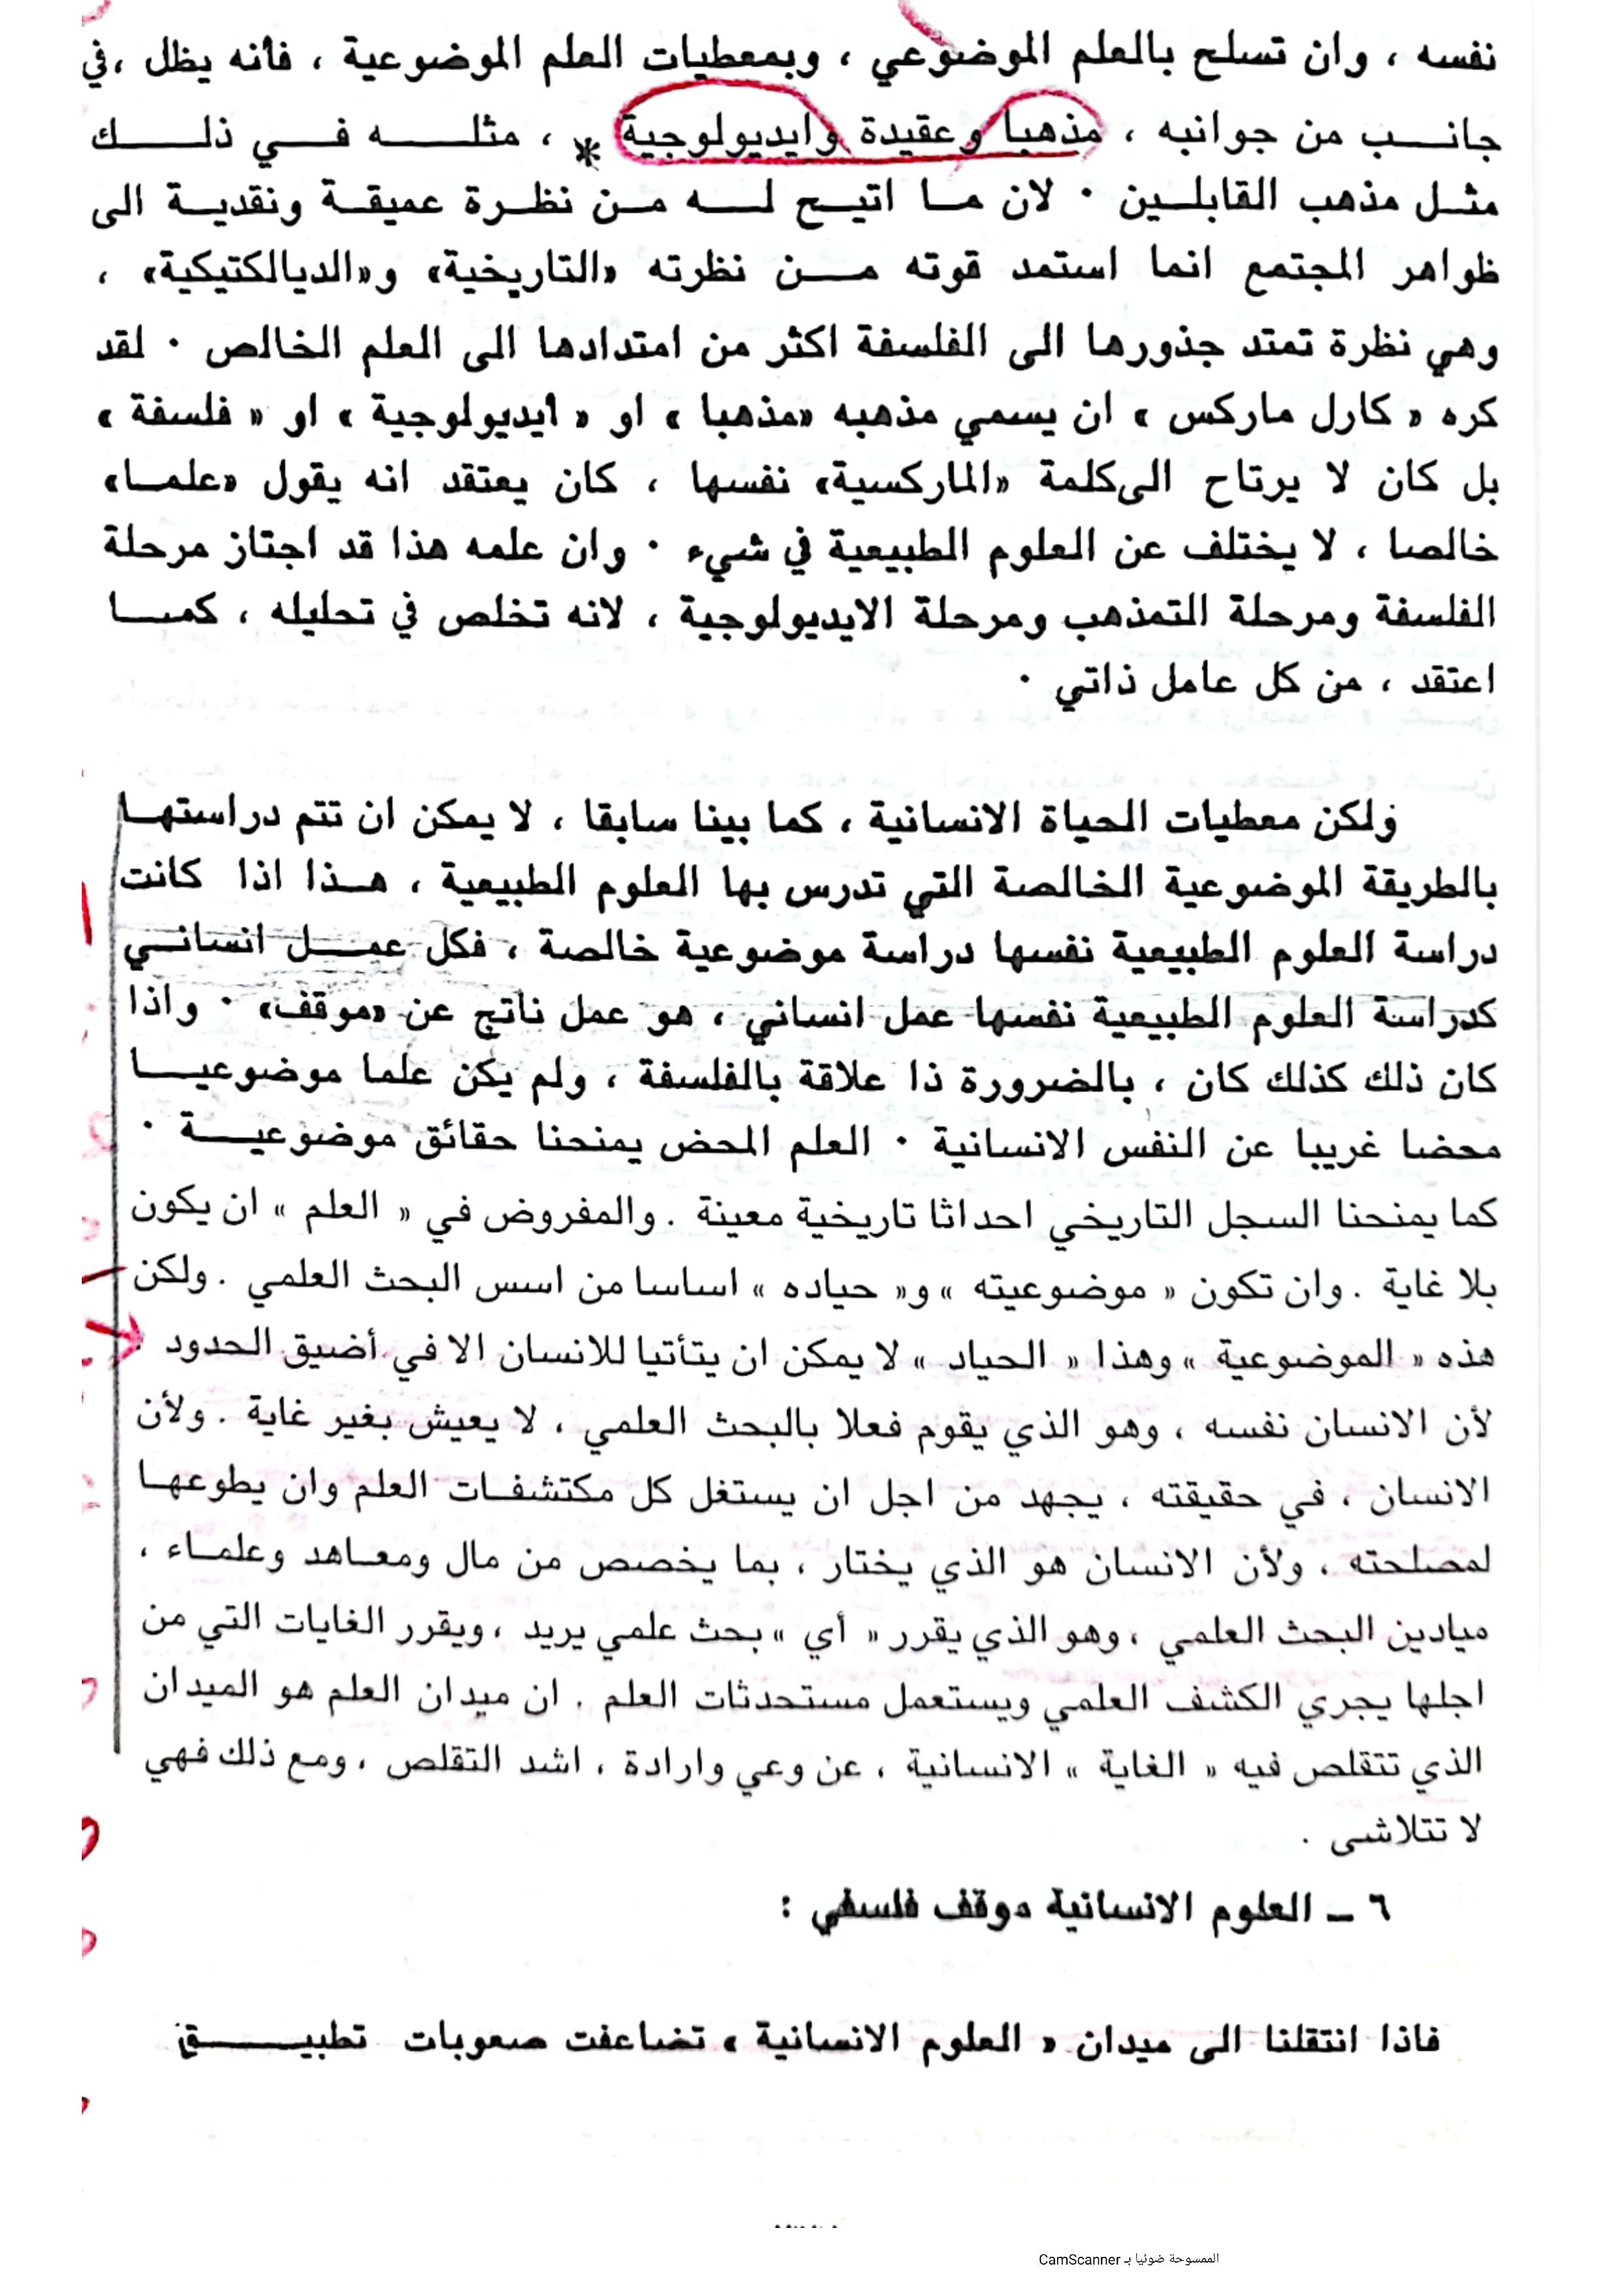 نفسه ، وان تسلح بالعلم الموضوعي ، وبمعطيات العلم الموضوعية ، فأنه يظل ،في
جانب من جوانبه ، مذهبا وعقيدة وايديولوجية * ، مثله في ذلك
مثل مذهب القابلين . لان ما اتيح له من نظرة عميقة ونقدية الى
ظواهر المجتمع انما استمد قوته من نظرته «التاريخية» و«الديالكتيكية» ،
وهي نظرة تمتد جذورها الى الفلسفة اكثر من امتدادها الى العلم الخالص . لقد
كره « كارل ماركس » ان يسمي مذهبه «مذهبا » او « ايديولوجية » او « فلسفة »
بل كان لا يرتاح الى كلمة «الماركسية» نفسها ، كان يعتقد انه يقول «علما»
خالصا ، لا يختلف عن العلوم الطبيعية في شيء . وان علمه هذا قد اجتاز مرحلة
الفلسفة ومرحلة التمذهب ومرحلة الايديولوجية ، لانه تخلص في تحليله ، كما
اعتقد ، من كل عامل ذاتي .
ولكن معطيات الحياة الانسانية ، كما بينا سابقا ، لا يمكن ان تتم دراستها
بالطريقة الموضوعية الخالصة التي تدرس بها العلوم الطبيعية ، هذا اذا كانت
دراسة العلوم الطبيعية نفسها دراسة موضوعية خالصة ، فكل عمل انساني
كدراسة العلوم الطبيعية نفسها عمل انساني ، هو عمل ناتج عن «موقف» . واذا
كان ذلك كذلك كان ، بالضرورة ذا علاقة بالفلسفة ، ولم يكن علما موضوعيا
محضا غريبا عن النفس الانسانية . العلم المحض يمنحنا حقائق موضوعية .
كما يمنحنا السجل التاريخي احداثا تاريخية معينة . والمفروض في « العلم » ان يكون
بلا غاية . وان تكون « موضوعيته » و« حياده » اساسا من اسس البحث العلمي . ولكن
هذه « الموضوعية » وهذا « الحياد » لا يمكن ان يتأتيا للانسان الا في أضيق الحدود
لأن الانسان نفسه ، وهو الذي يقوم فعلا بالبحث العلمي ، لا يعيش بغير غاية . ولأن
الانسان ، في حقيقته ، يجهد من اجل ان يستغل كل مكتشفات العلم وان يطوعها
لمصلحته ، ولأن الانسان هو الذي يختار ، بما يخصص من مال ومعاهد وعلماء ،
ميادين البحث العلمي ، وهو الذي يقرر « أي » بحث علمي يريد ، ويقرر الغايات التي من
اجلها يجري الكشف العلمي ويستعمل مستحدثات العلم . ان ميدان العلم هو الميدان
الذي تتقلص فيه « الغاية » الانسانية ، عن وعي وارادة ، اشد التقلص ، ومع ذلك فهي
لا تتلاشى .
٦ ـ العلوم الانسانية موقف فلسفي :
فاذا انتقلنا الى ميدان « العلوم الانسانية » تضاعفت صعوبات تطبيق
الممسوحة ضوئيا بـ CamScanner